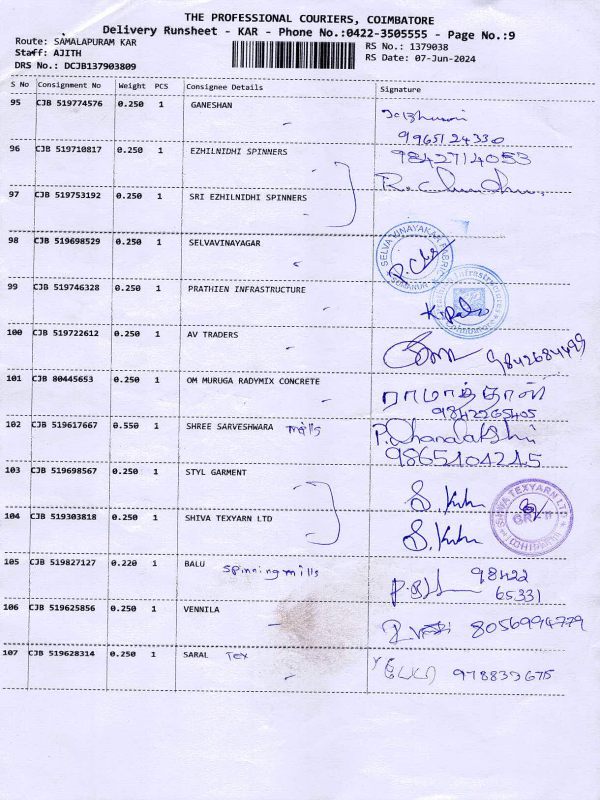 THE PROFESSIONAL COURIERS, COIMBATORE
Delivery Runsheet - KAR - Phone No.:0422-3505555 - Page No.:9
Route: SAMALAPURAM KAR
RS No.: 1379038
Staff: AJITH
RS Date: 07-Jun-2024
DRS No.: DCJB137903809
S No Consignment No Weight PCS Consignee Details Signature
95 CJB 519774576 0.250 1 GANESHAN
9965124330
96 CJB 519710817 0.250 1 EZHILNIDHI SPINNERS 9842714053
97 CJB 519753192 0.250 1 SRI EZHILNIDHI SPINNERS
98 CJB 519698529 0.250 1 SELVAVINAYAGAR
SELVA VINAYAKAR FABRIC
99 CJB 519746328 0.250 1 PRATHIEN INFRASTRUCTURE
100 CJB 519722612 0.250 1 AV TRADERS 9842684499
101 CJB 80445653 0.250 1 OM MURUGA RADYMIX CONCRETE ராமாத்தாள்
9842265405
102 CJB 519617667 0.550 1 SHREE SARVESHWARA mills P. Dhanalakshmi
9865104215
103 CJB 519698567 0.250 1 STYL GARMENT
SHIVA TEXYARN LTD
104 CJB 519303818 0.250 1 SHIVA TEXYARN LTD
105 CJB 519827127 0.220 1 BALU spinning mills 98422
65331
106 CJB 519625856 0.250 1 VENNILA 8056994779
107 CJB 519628314 0.250 1 SARAL Tex